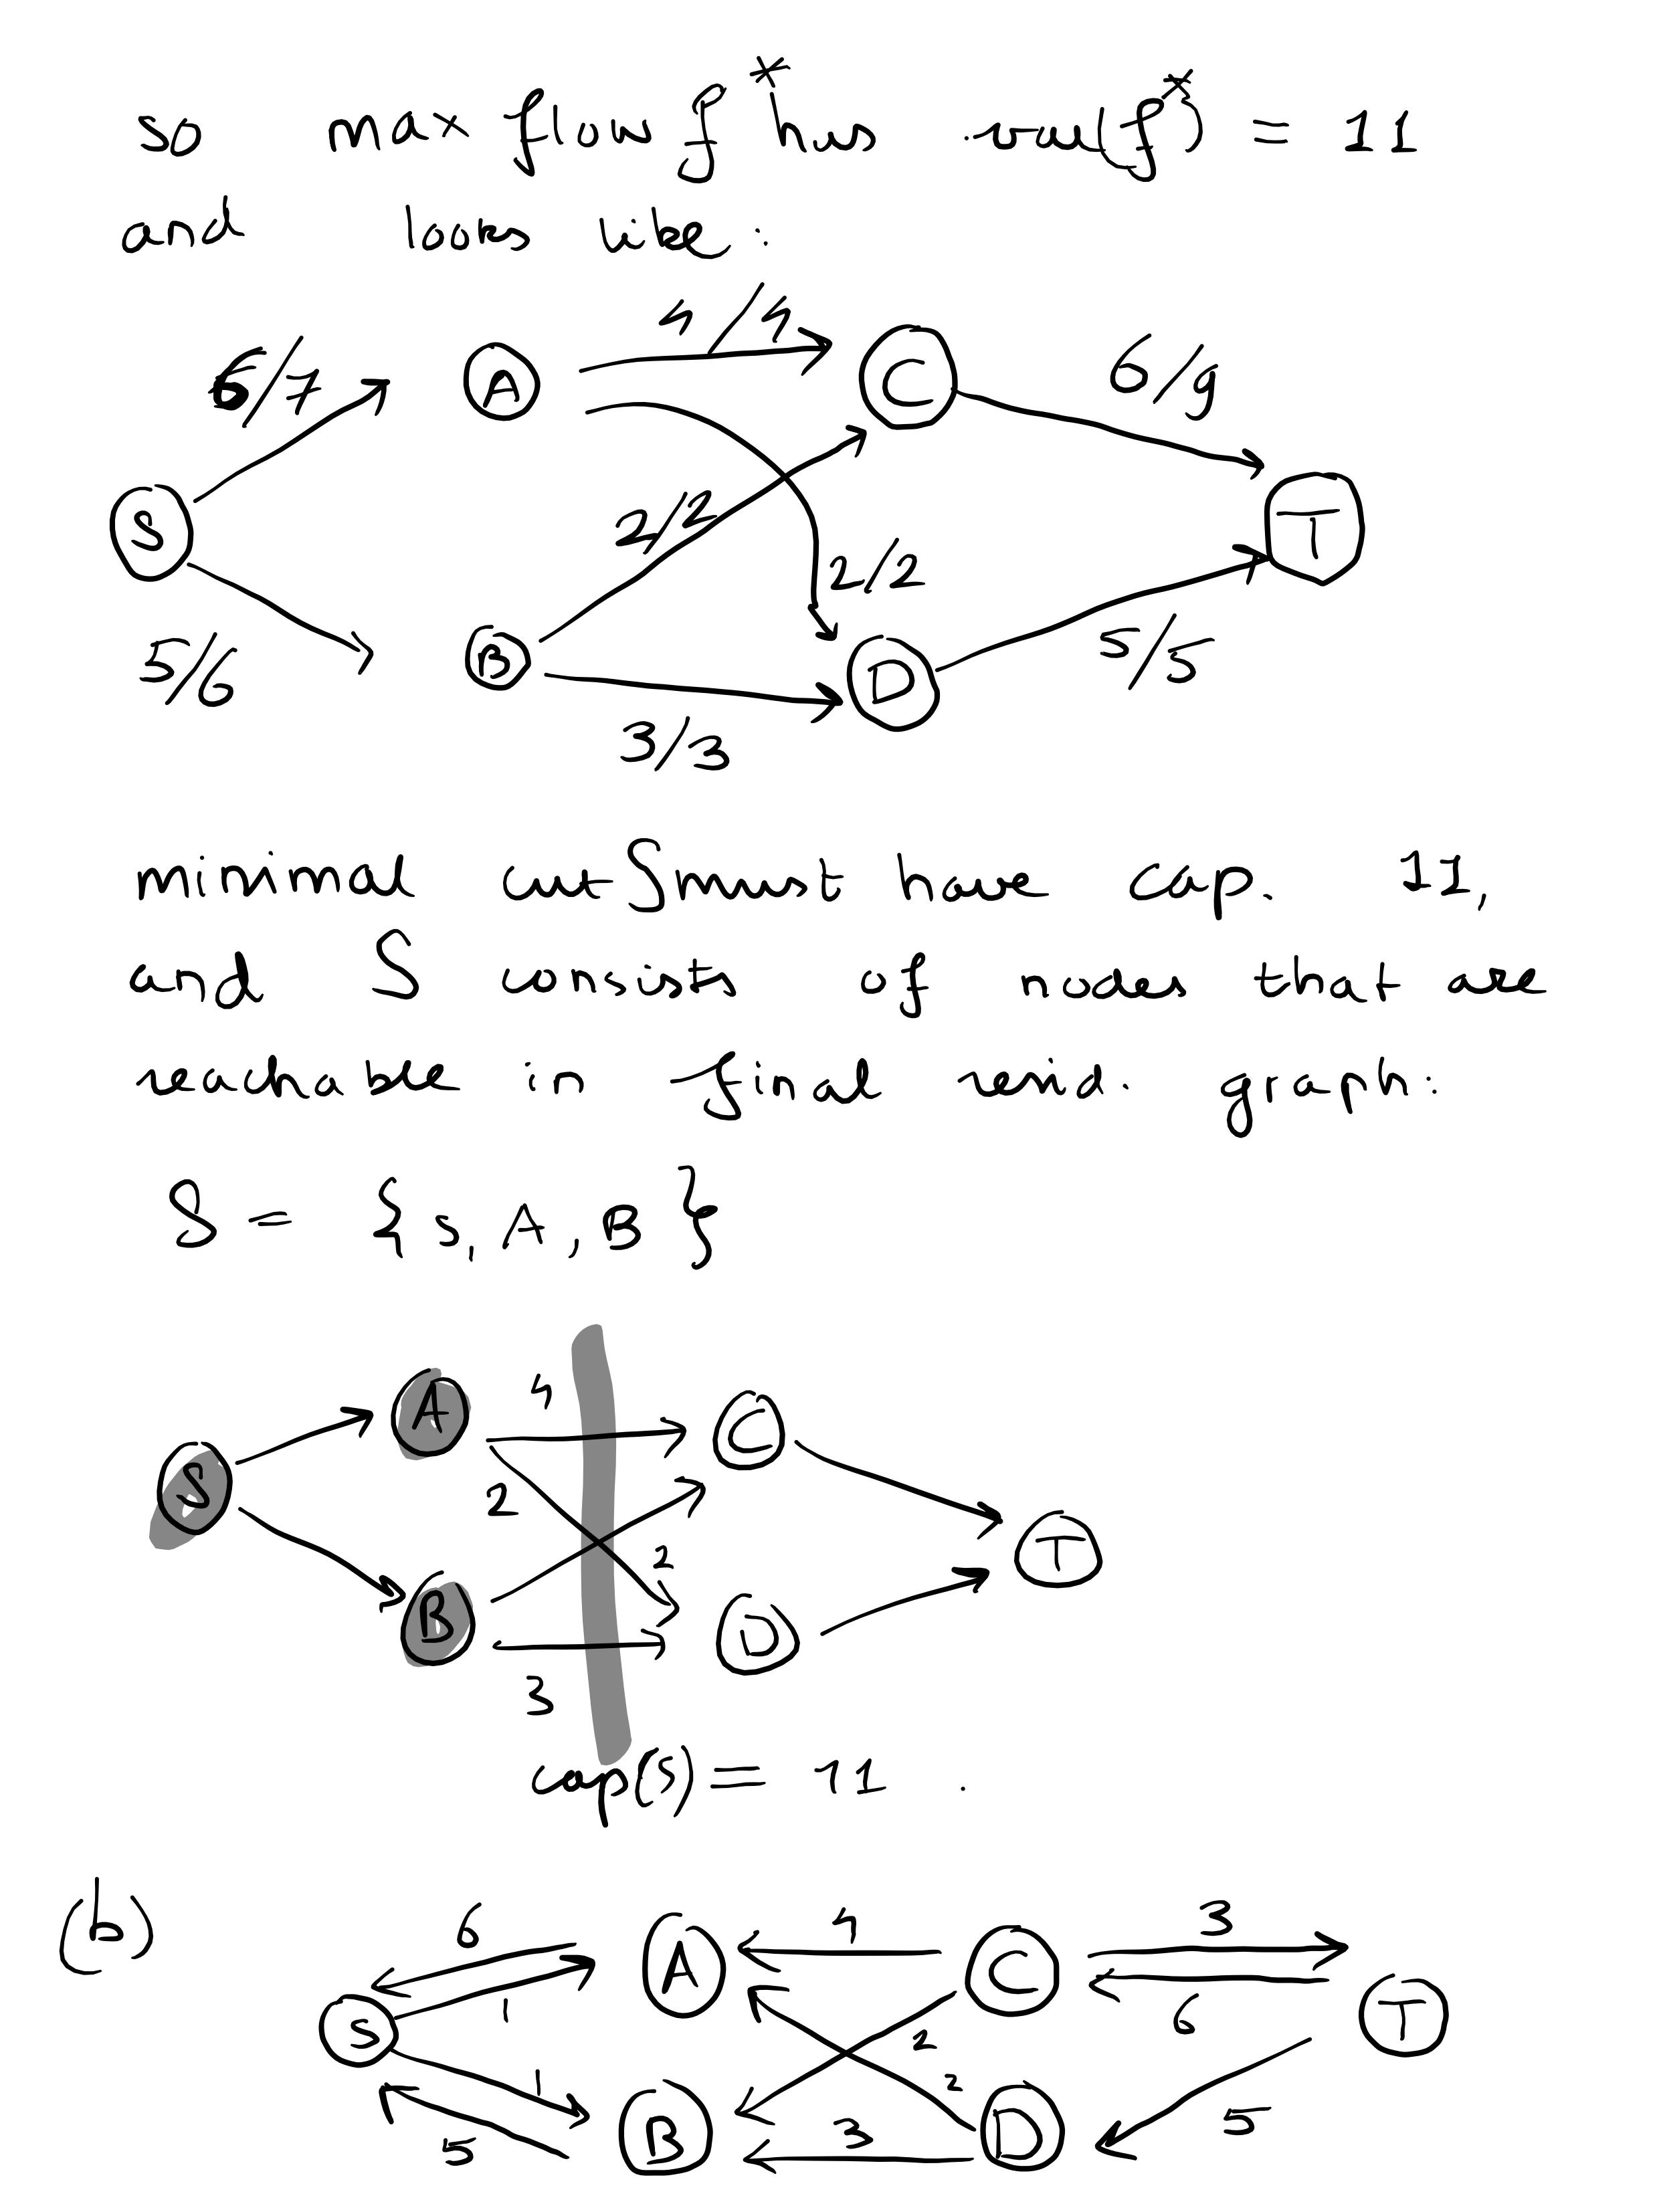 so max flow f* has val(f*) = 11
and looks like:
4/4
6/7 A C 6/9
S 2/2 T
2/2
5/6 B D 5/5
3/3
minimal cut S must have cap. 11,
and S consists of nodes that are
reachable in final resid. graph:
S = {s, A, B}
A 4 C
S 2
2 T
B D
3
cap(S) = 11.
(b) 6 A 4 C 3
S 1 6 T
1 2
2
5 B 3 D 5